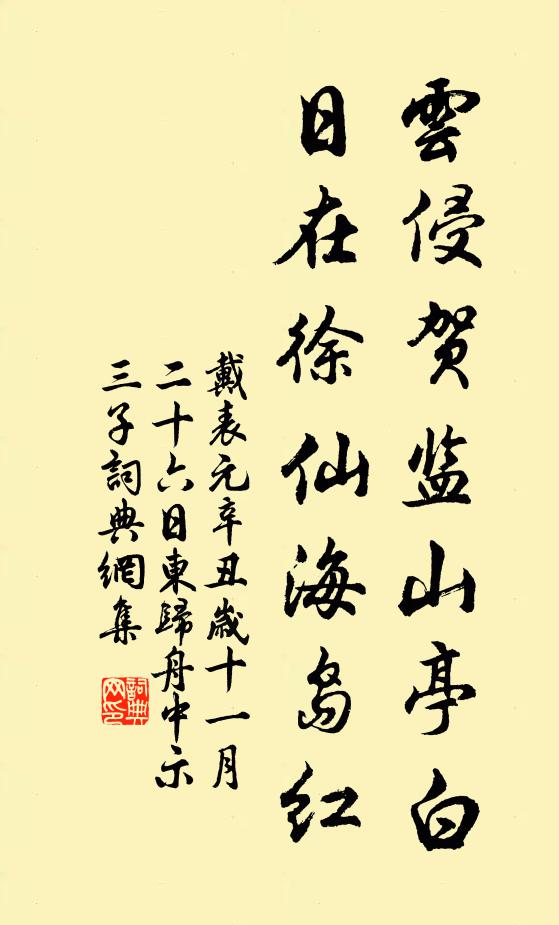 雲侵贺监山亭白
日在徐仙海岛红
戴表元辛丑歲十一月
二十六日東歸舟中示
三子詞典網集
詞典网印